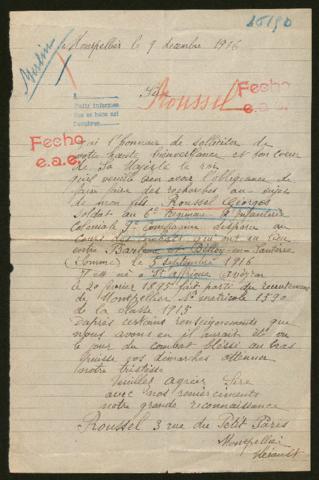 15190
Berlin
Montpellier le 9 decembre 1916
Sire
Roussel
Fecho
e.a.e.
Fecho
e.a.e.
J'ai l'honneur de solliciter de
votre haute bienveillance et bon coeur
de Sa Majesté le roi
qu'il veuille bien avoir l'obligeance de
faire faire des recherches au sujet
de mon fils Roussel Georges
Soldat au 6e Regiment d'Infanterie
Coloniale 9e compagnie disparu au
cours des combats qui ont eu lieu
entre Barleux et Belloy en Santerre
(Somme) le 5 septembre 1916
Il est né à St affrique Aveyron
le 20 fevrier 1895 fait parti du recrutement
de Montpellier No matricule 1590
de la classe 1915
Daprès certains renseignements que
nous avons eu il aurait été vu
le jour du combat blessé au bras
Puisse vos démarches attenuer
notre tristesse
Veuillez agréer Sire
avec nos remerciments
notre grande reconnaissance
Roussel 3 rue du Petit Paris
Montpellier
Hérault